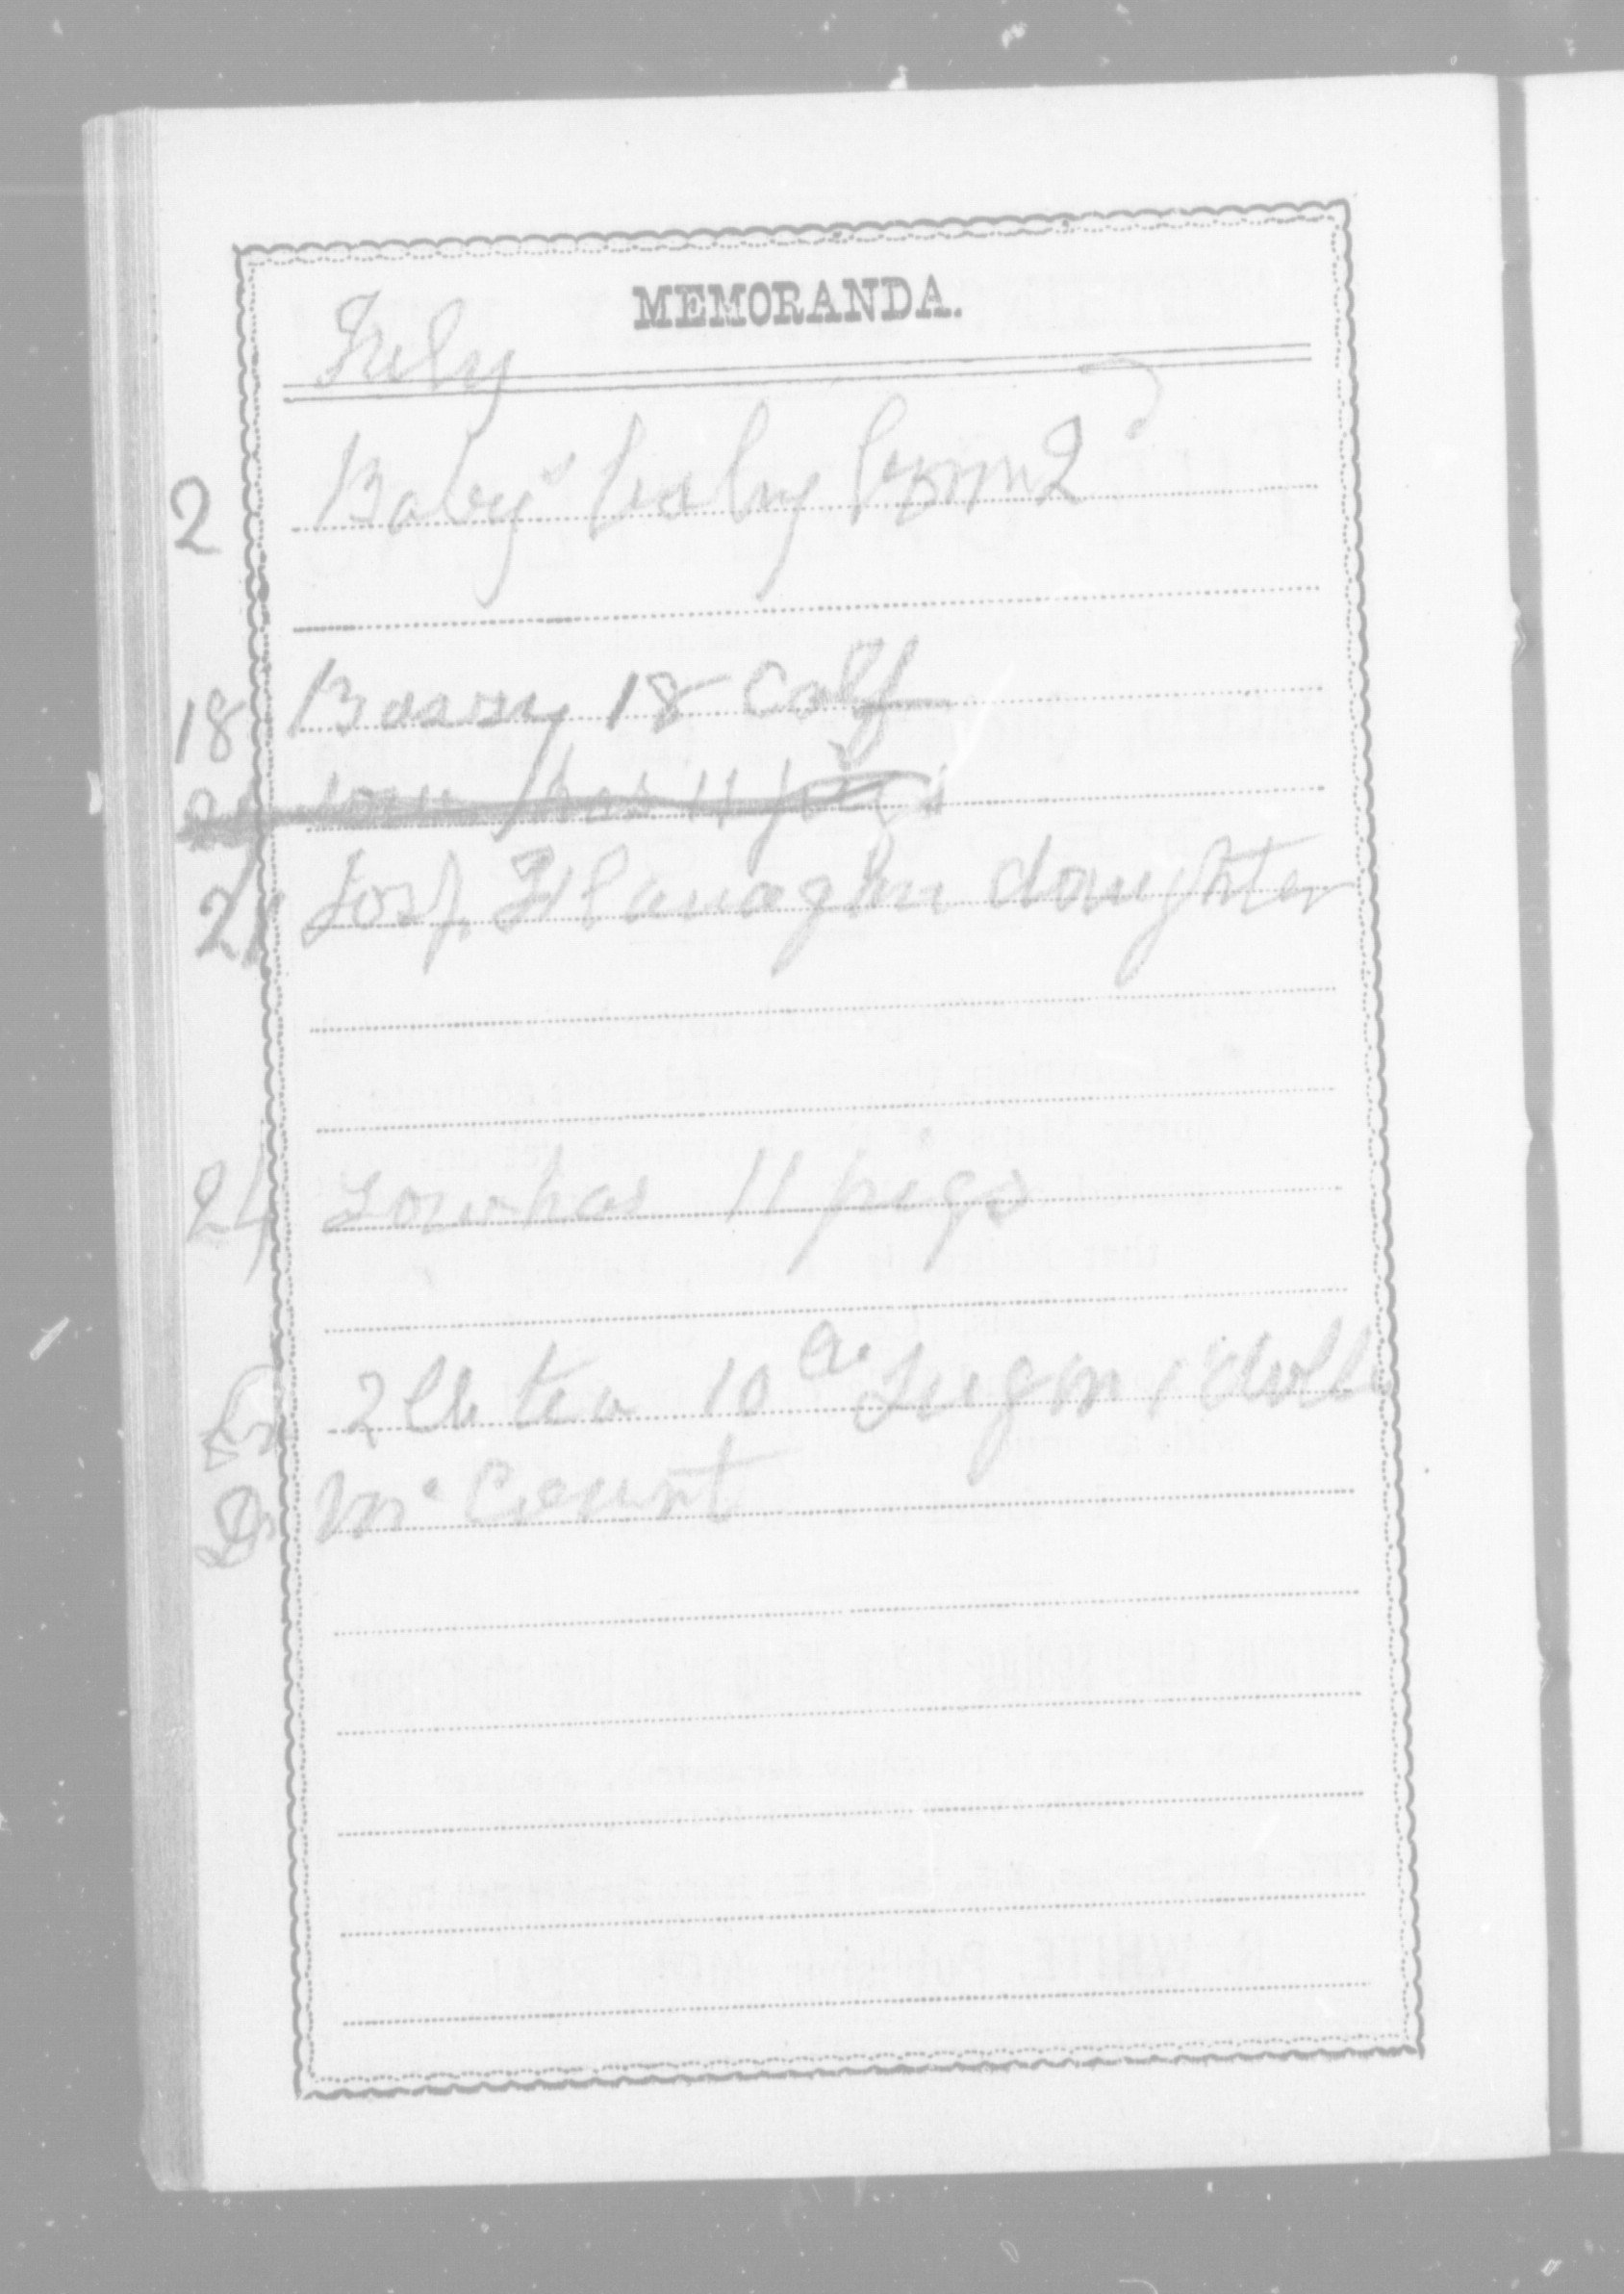 MEMORANDA.
July
2 Baby baby born 2
18 Bossy 18 Calf
sow has 11 pigs
21 Josf. Flanaghn daughter
24 sow has 11 pigs
2 lb tea 10 Sugar 1 doll
Dr Mc Court